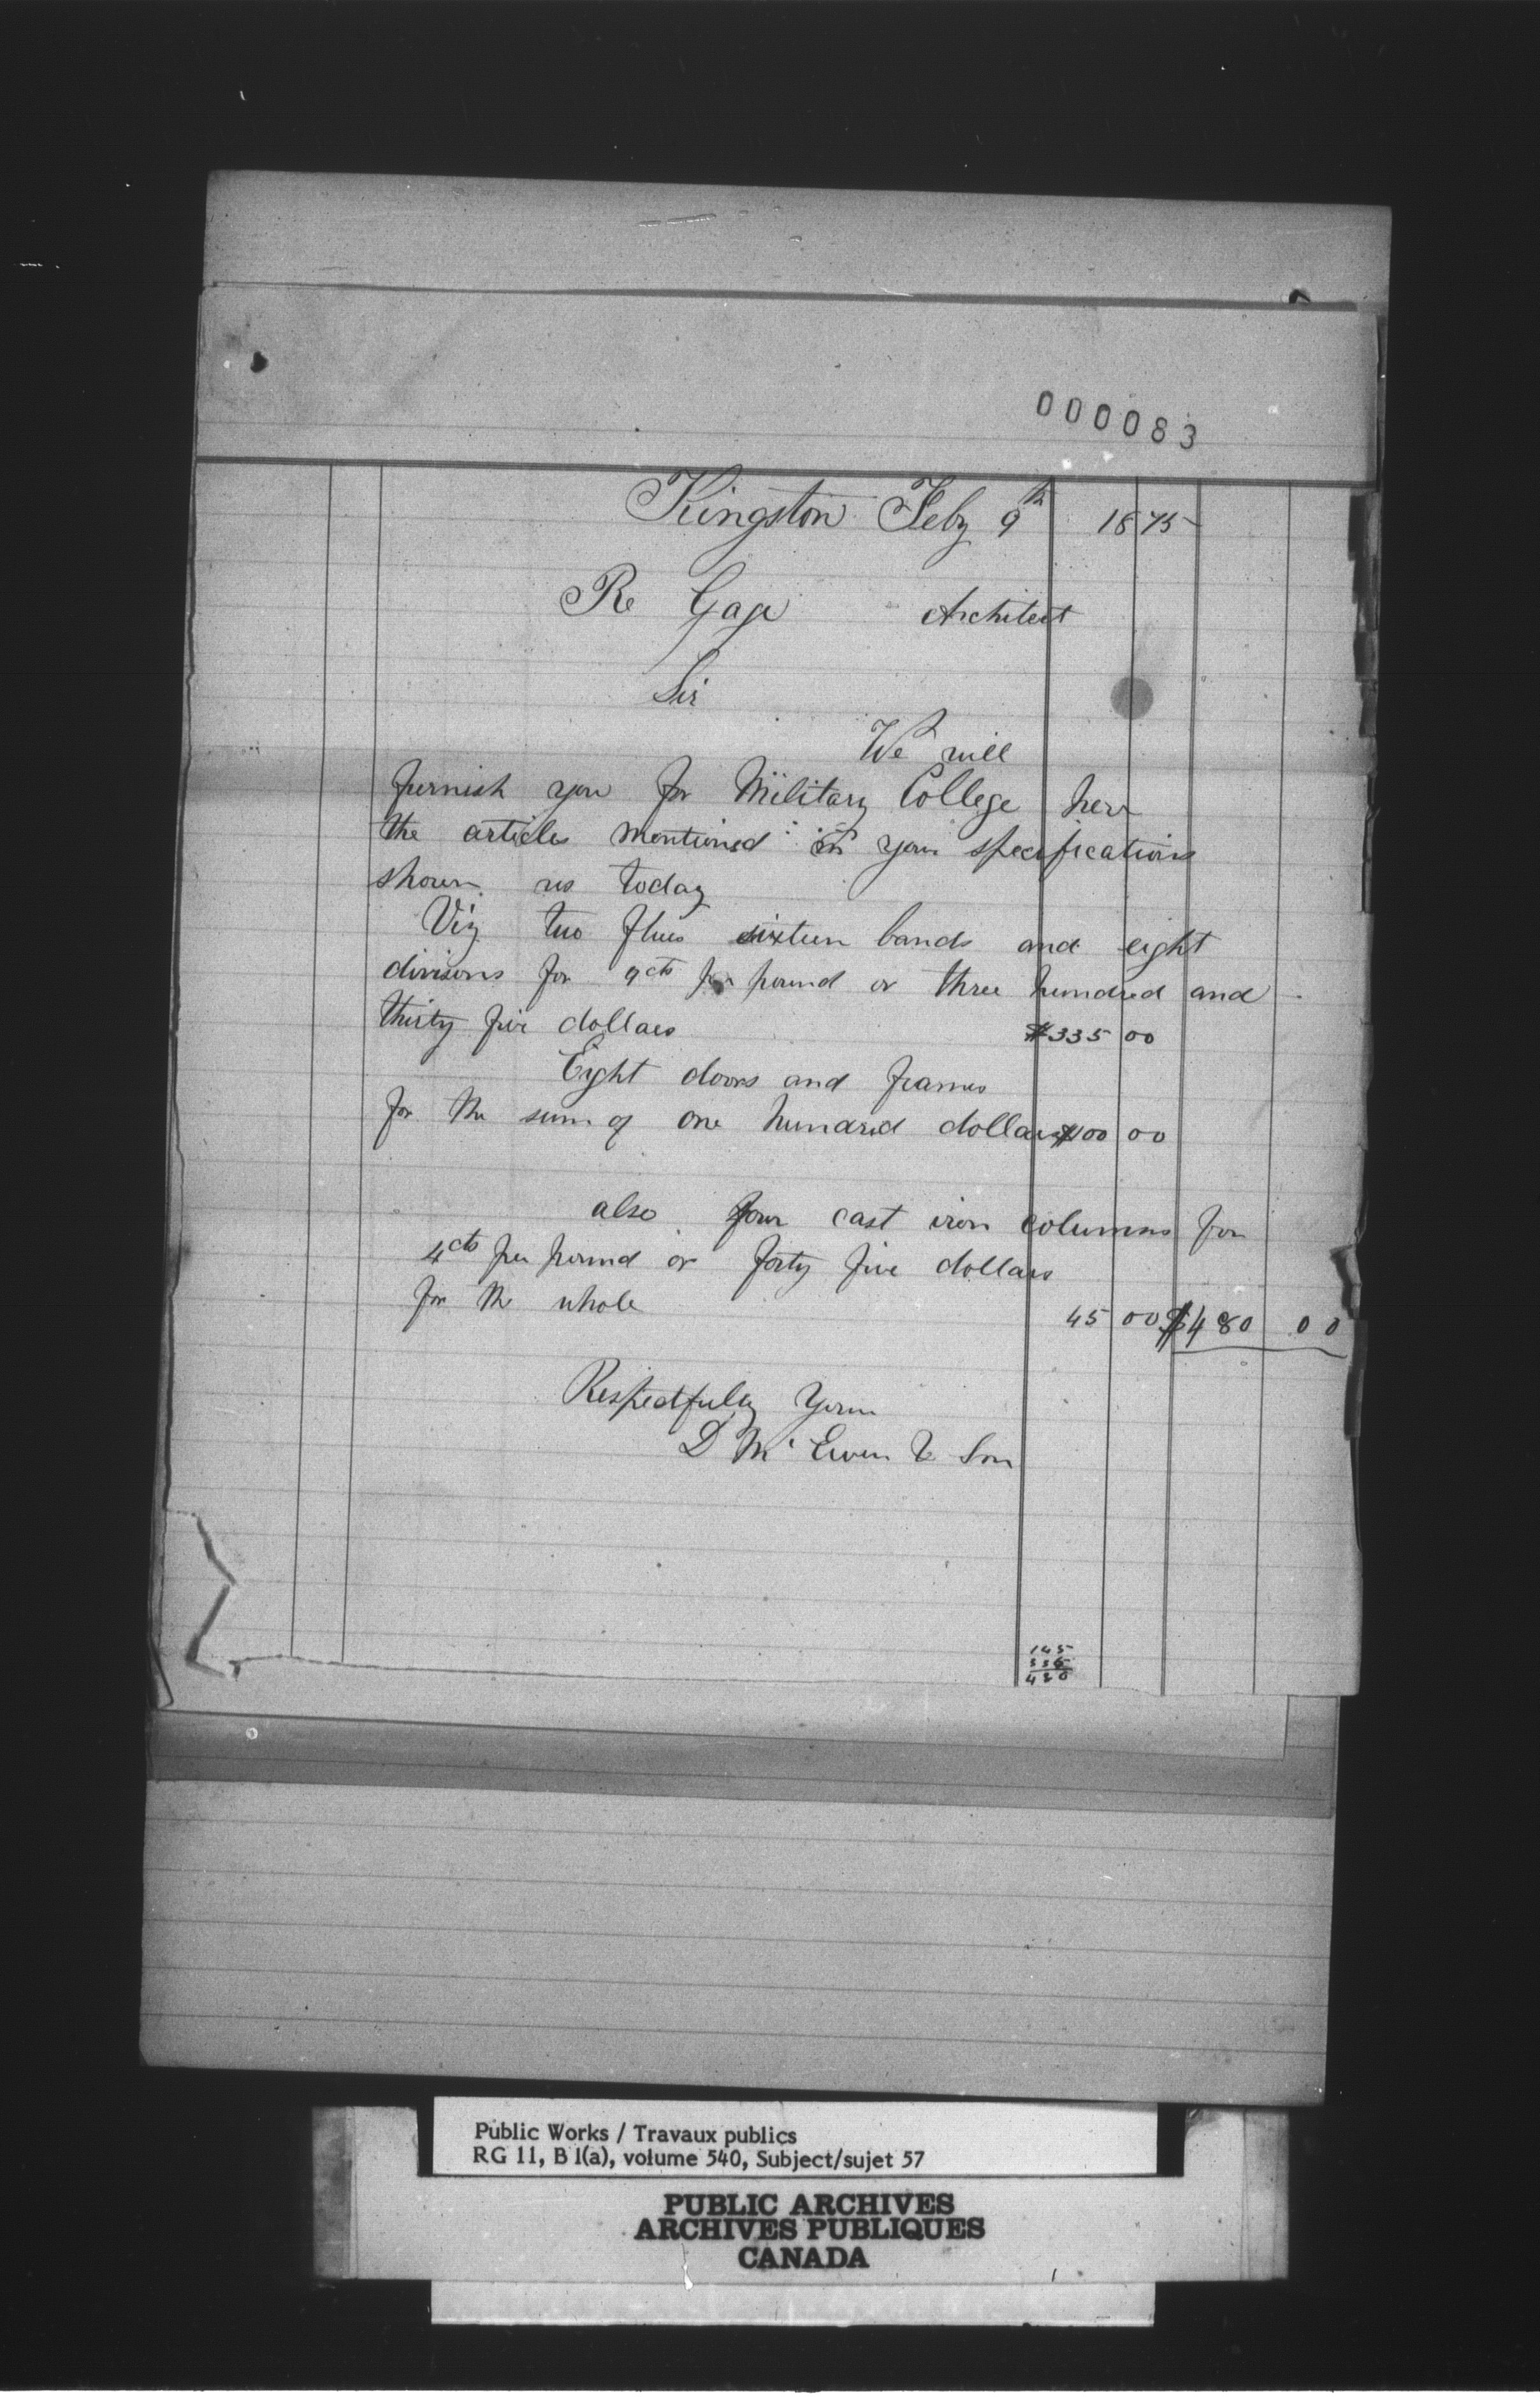 000083
Kingston Feby 9th 1875
R Gage Architect
Sir
We will
furnish you for Military College here
the articles mentioned in your specifications
shown us today
Viz two flues sixteen bands and eight
divisons for 9cts per pound or three hundred and
thirty five dollars $335 00
Eight doors and frames
for the sum of one hundred dollars $100 00
also four cast iron columns for
4cts per pound or forty five dollars
for the whole 45 00 $480 00
Respectfully Yours
D McEwen & Son
145
335
480
Public Works / Travaux publics
RG 11, B 1(a), volume 540, Subject/sujet 57
PUBLIC ARCHIVES
ARCHIVES PUBLIQUES
CANADA